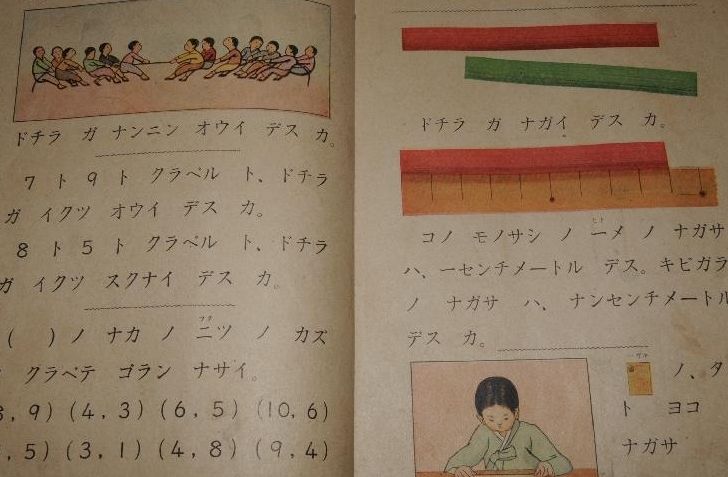 ドチラ ガ ナンニン オウイ デス カ。
7 ト 9 ト クラベル ト、ドチラ
ガ イクツ オウイ デス カ。
8 ト 5 ト クラベル ト、ドチラ
ガ イクツ スクナイ デス カ。
( ) ノ ナカ ノ 二ツ ノ カズ
クラベテ ゴラン ナサイ。
, 9) (4, 3) (6, 5) (10, 6)
, 5) (3, 1) (4, 8) (9, 4)
ドチラ ガ ナガイ デス カ。
コノ モノサシ ノ 一メ ノ ナガサ
ハ、一センチメートル デス。キビガラ
ノ ナガサ ハ、ナンセンチメートル
デス カ。
ノ、タ
ト ヨコ
ナガサ